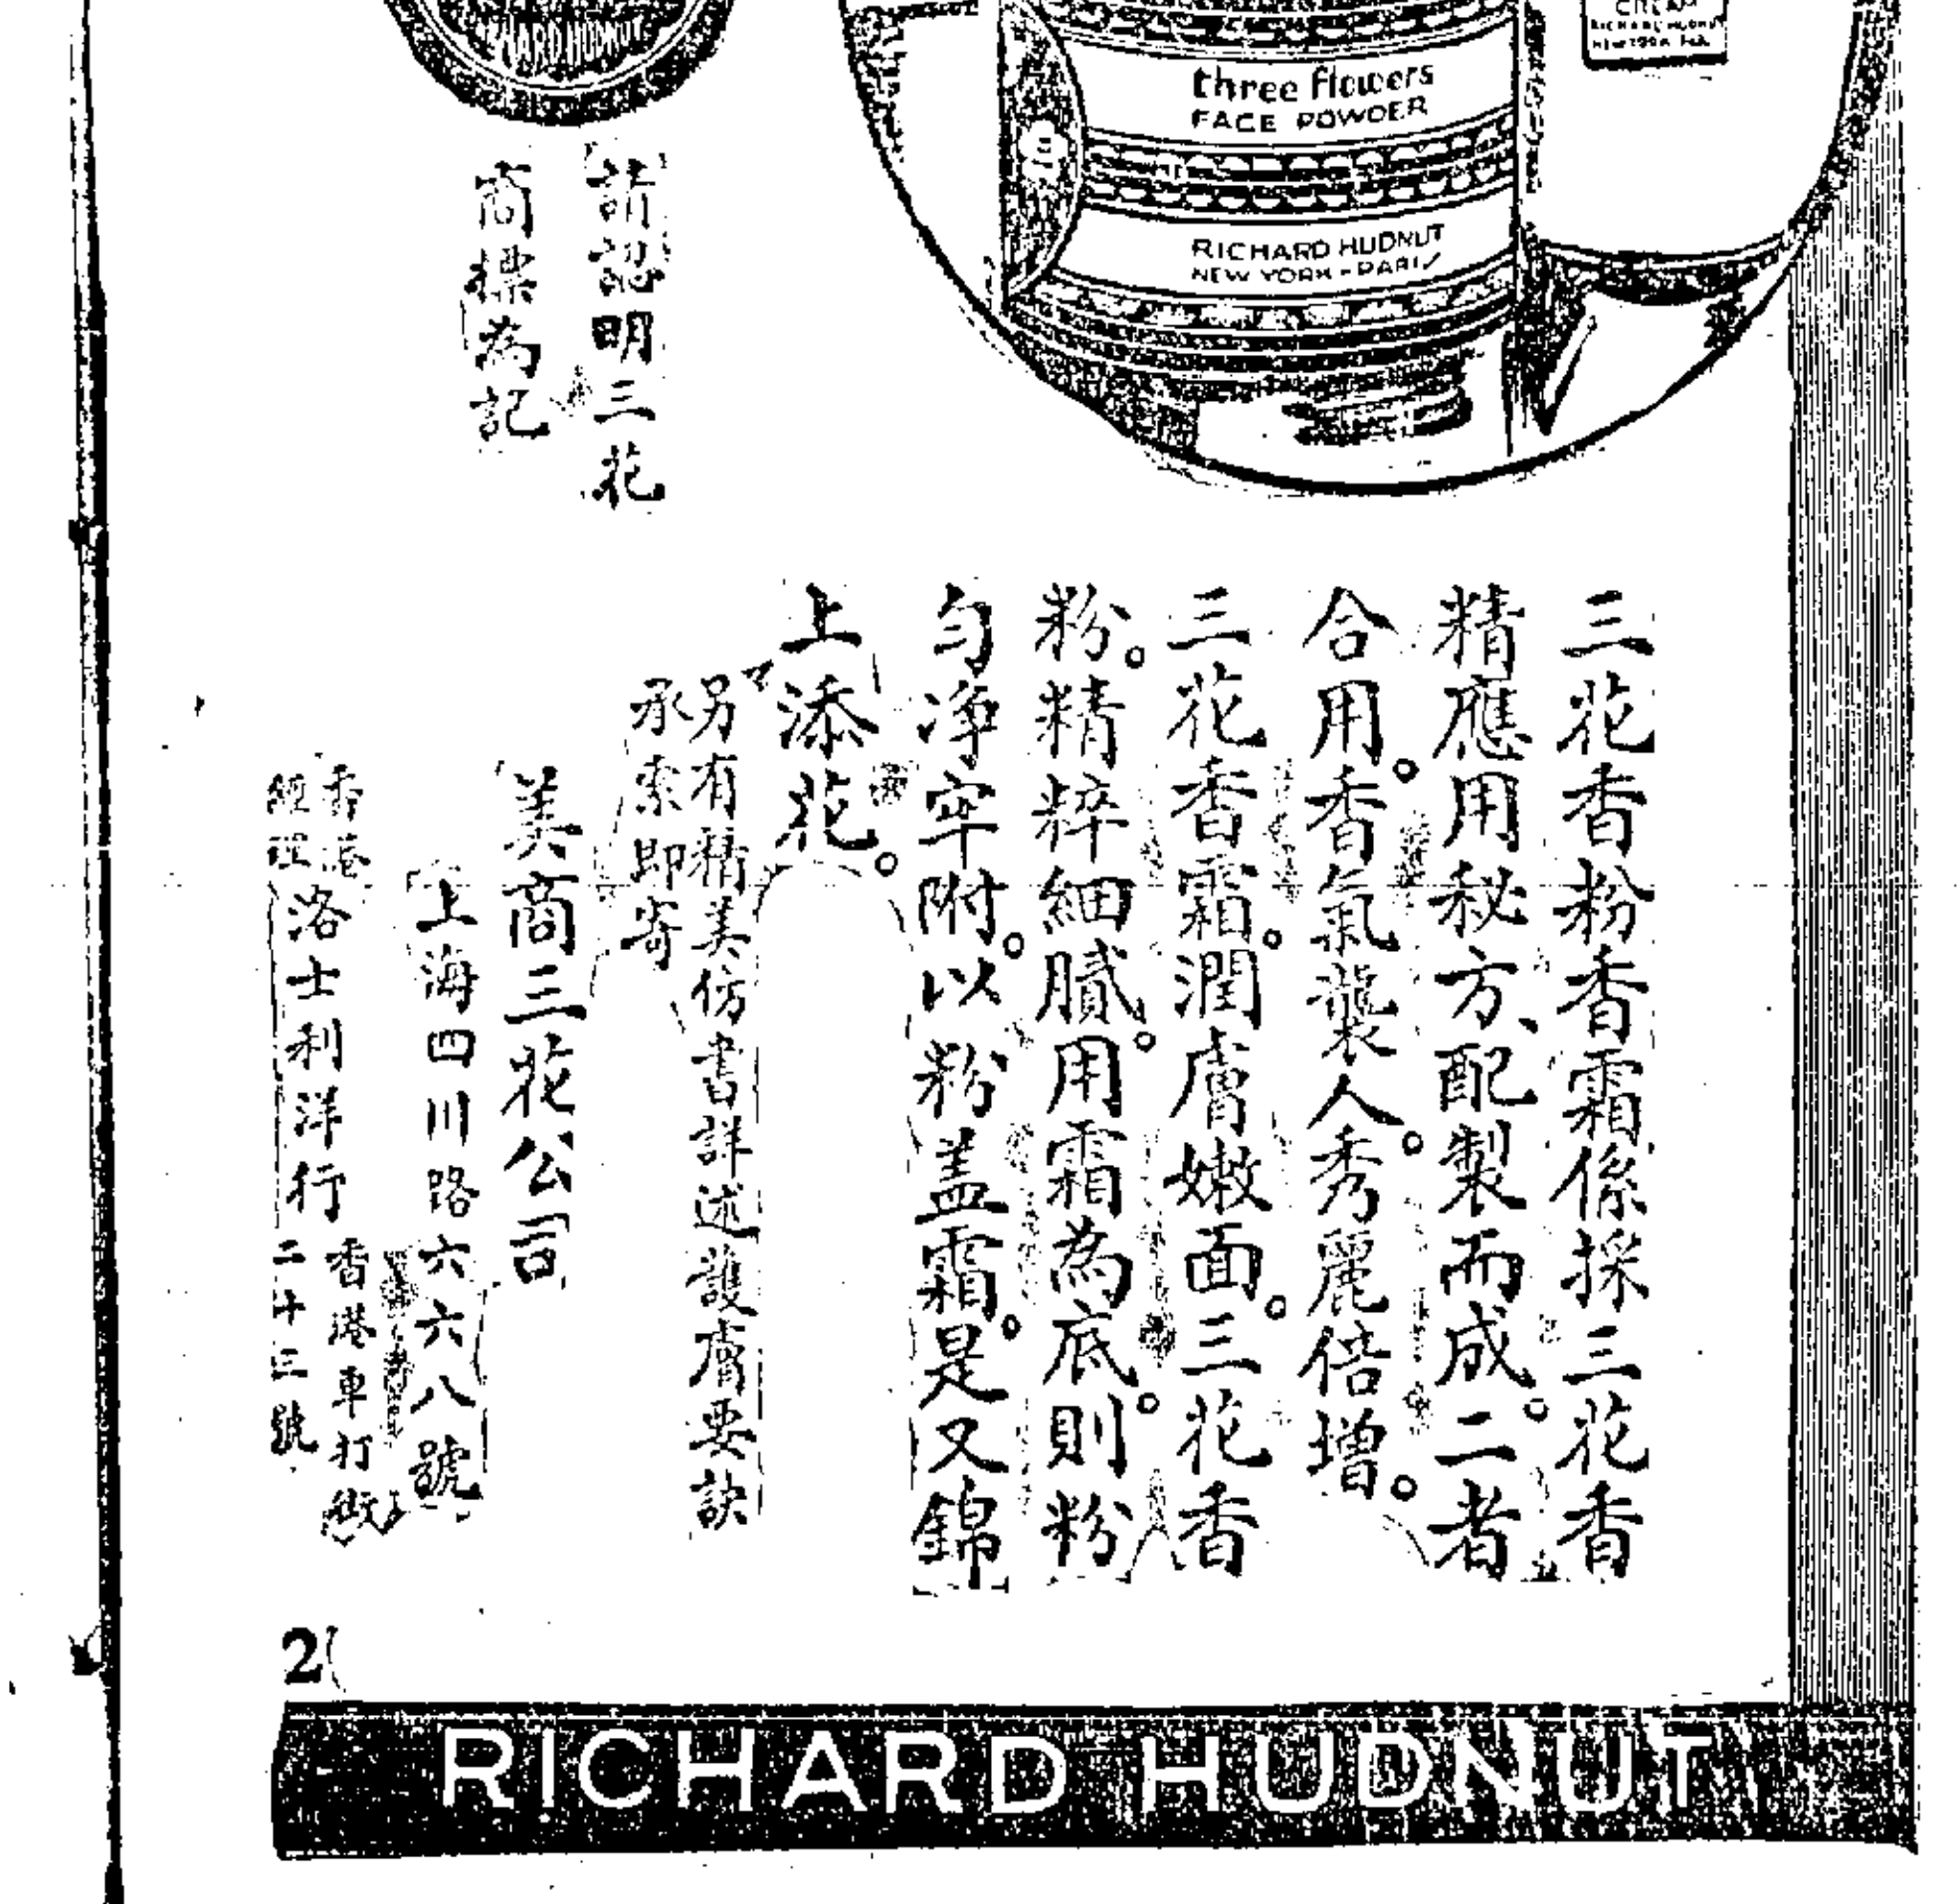 RICHARD HUDNUT
CREAM
RICHARD HUDNUT
three flowers
FACE POWDER
RICHARD HUDNUT
NEW YORK - PARIS
請認明三花
商標為記
三花香粉香霜係採三花香
精應用秘方、配製而成。二者
合用。香氣襲人。秀麗倍增。
三花香霜。潤膚嫩面。三花香
粉。精粹細膩。用霜為底。則粉
勻淨牢附。以粉蓋霜。是又錦
上添花。
另有精美仿書詳述護膚要訣
承索即寄
美商三花公司
上海四川路六六八號
香港
經理
洛士利洋行
香港車打街
二十三號
2
RICHARD HUDNUT